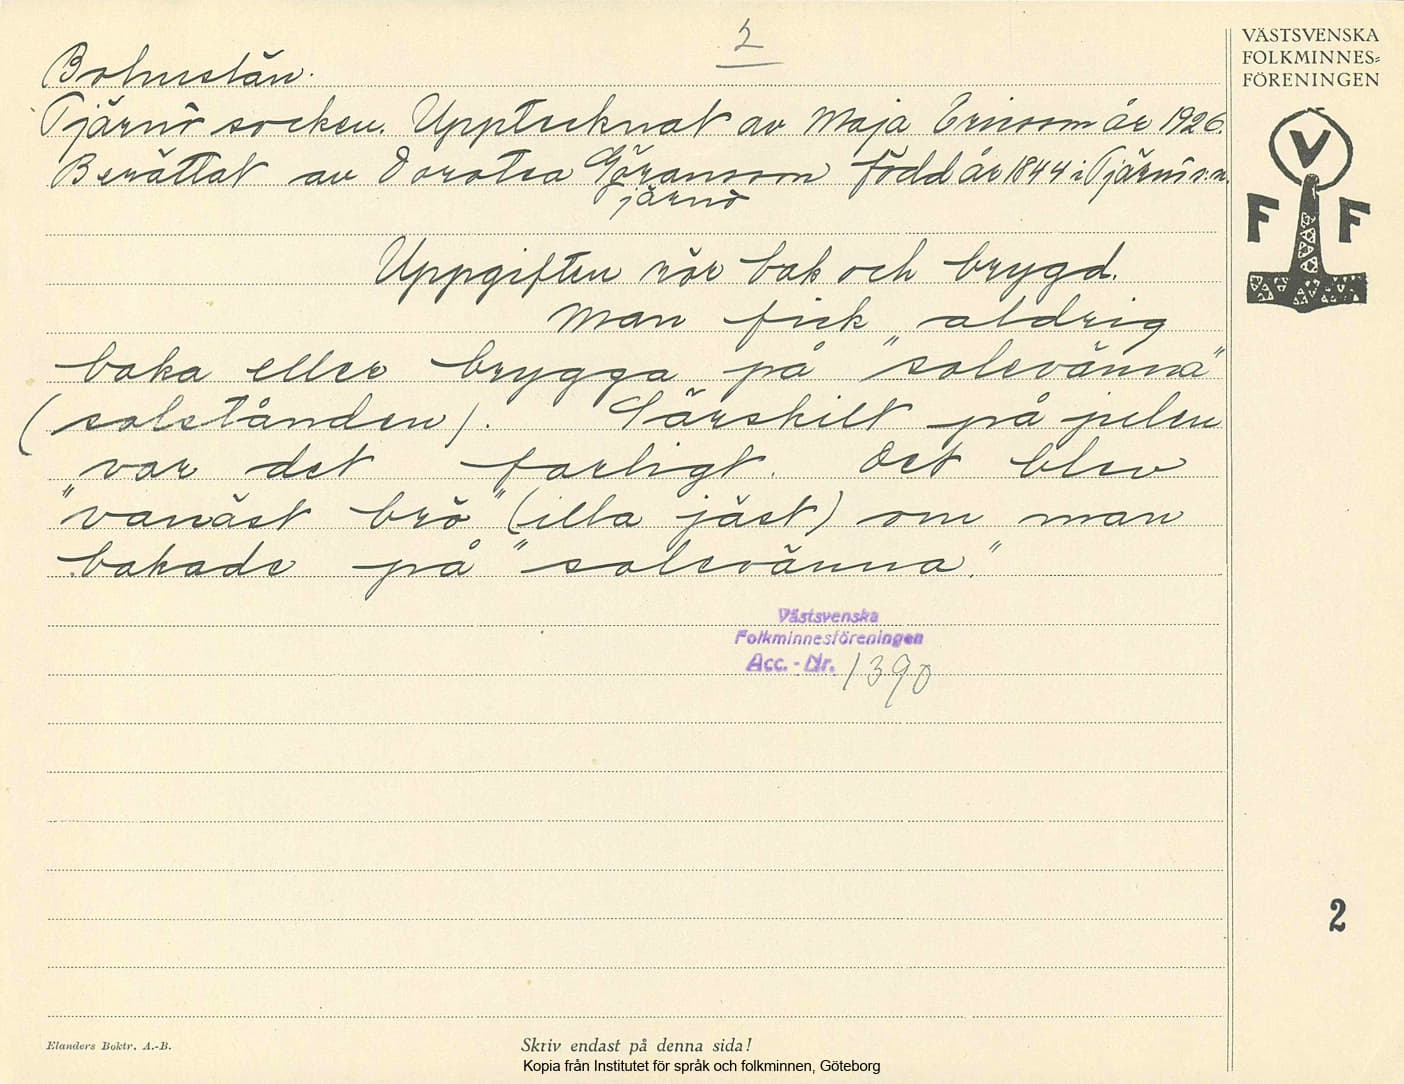 2
VÄSTSVENSKA
FOLKMINNES=
FÖRENINGEN
Bohuslän.
Tjärnö socken. Upptecknat av Maja Ericson år 1926.
Berättat av Dorotea Göransson född år 1844 i Tjärnö s:n.
järnö
V
F F
Uppgiften rör bak och brygd.
Man fick aldrig
baka eller brygga på "solevänna"
(solstånden). Särskilt på julen
var det farligt. Det blev
"vanäst brö" (illa jäst) om man
bakade på "solevänna."
Västsvenska
Folkminnesföreningen
Acc. - Nr. 1390
2
Elanders Boktr. A.-B.
Skriv endast på denna sida!
Kopia från Institutet för språk och folkminnen, Göteborg